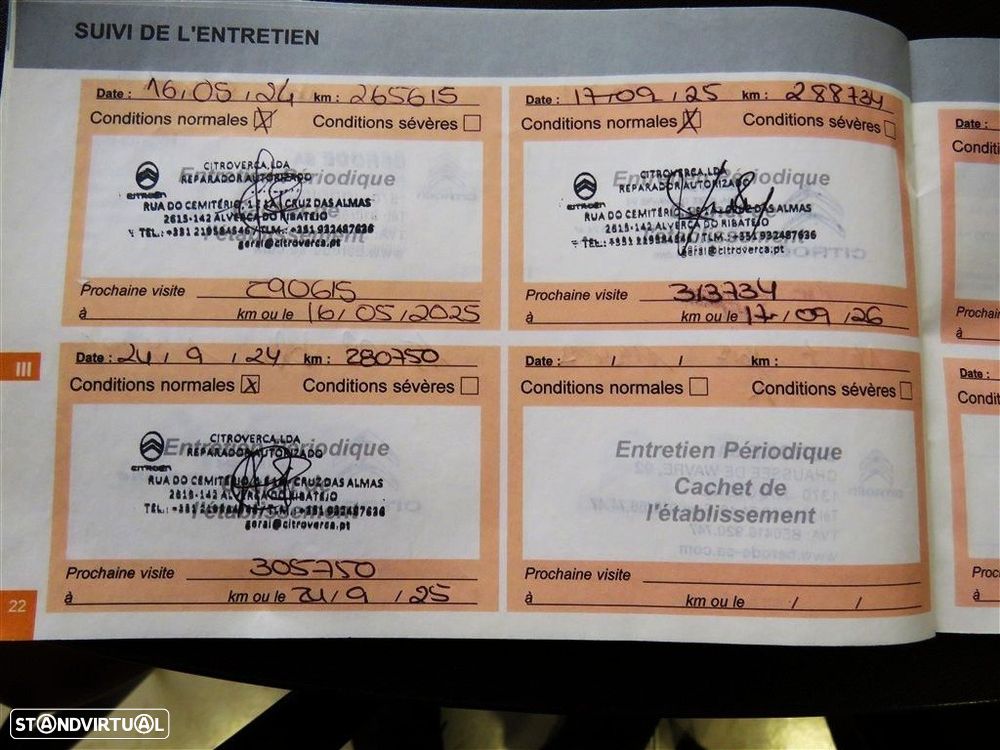 SUIVI DE L'ENTRETIEN
Date : 16 / 05 / 24 km : 265615
Conditions normales ☒ Conditions sévères ☐
CITROVERCA, LDA
REPARADOR AUTORIZADO
Entretien Périodique
CITROËN
RUA DO CEMITÉRIO, CRUZ DAS ALMAS
2615-142 ALVERCA DO RIBATEJO
TEL.: +351 219584646 / TLM.: +351 932487636
l'établissement
geral@citroverca.pt
Prochaine visite 290615
à km ou le 16 / 05 / 2025
Date : 17 / 09 / 25 km : 288734
Conditions normales ☒ Conditions sévères ☐
CITROVERCA, LDA
REPARADOR AUTORIZADO
Entretien Périodique
CITROËN
RUA DO CEMITÉRIO, CRUZ DAS ALMAS
2615-142 ALVERCA DO RIBATEJO
TEL.: +351 219584646 / TLM.: +351 932487636
l'établissement
geral@citroverca.pt
Prochaine visite 313734
à km ou le 17 / 09 / 26
III
Date : 24 / 9 / 24 km : 280750
Conditions normales ☒ Conditions sévères ☐
CITROVERCA, LDA
Entretien Périodique
REPARADOR AUTORIZADO
CITROËN
RUA DO CEMITÉRIO, CRUZ DAS ALMAS
2615-142 ALVERCA DO RIBATEJO
TEL.: +351 219584646 / TLM.: +351 932487636
l'établissement
geral@citroverca.pt
Prochaine visite 305750
à km ou le 24 / 9 / 25
Date : / / km :
Conditions normales ☐ Conditions sévères ☐
Entretien Périodique
Cachet de
l'établissement
Prochaine visite
à km ou le / /
22
Date :
Date :
à
à
STANDVIRTUAL